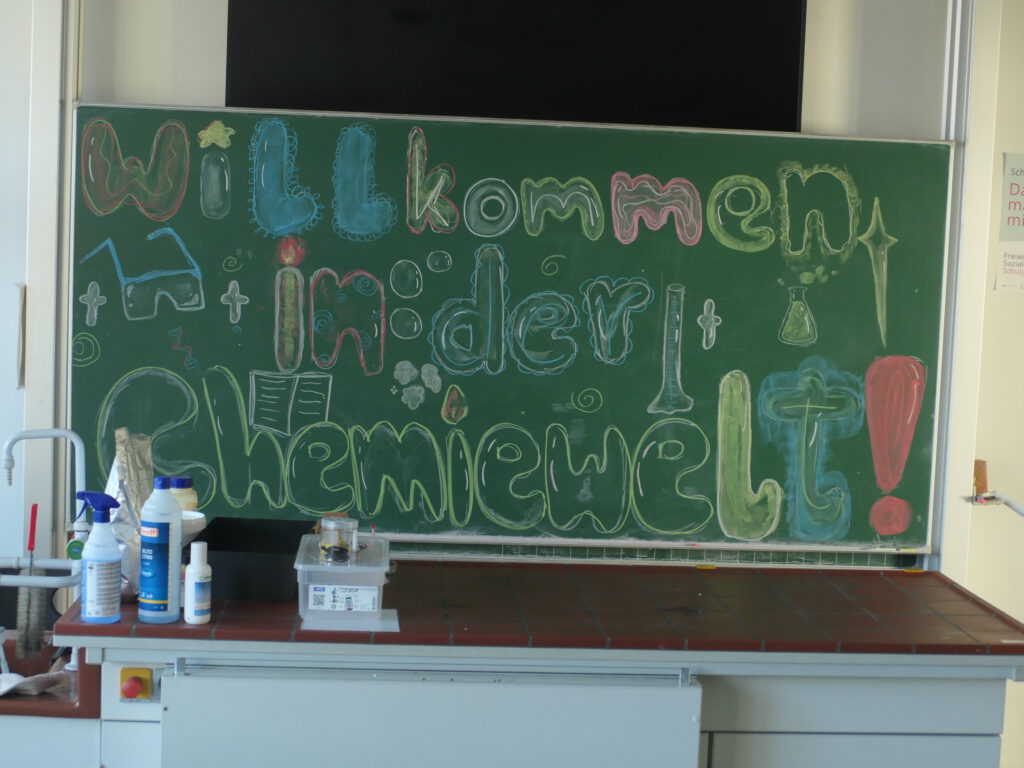 Willkommen
in der
Chemiewelt!
BLITZ
CITRO
JOY
Sch
Da
m
mi
Freiw
Sozial
Schul